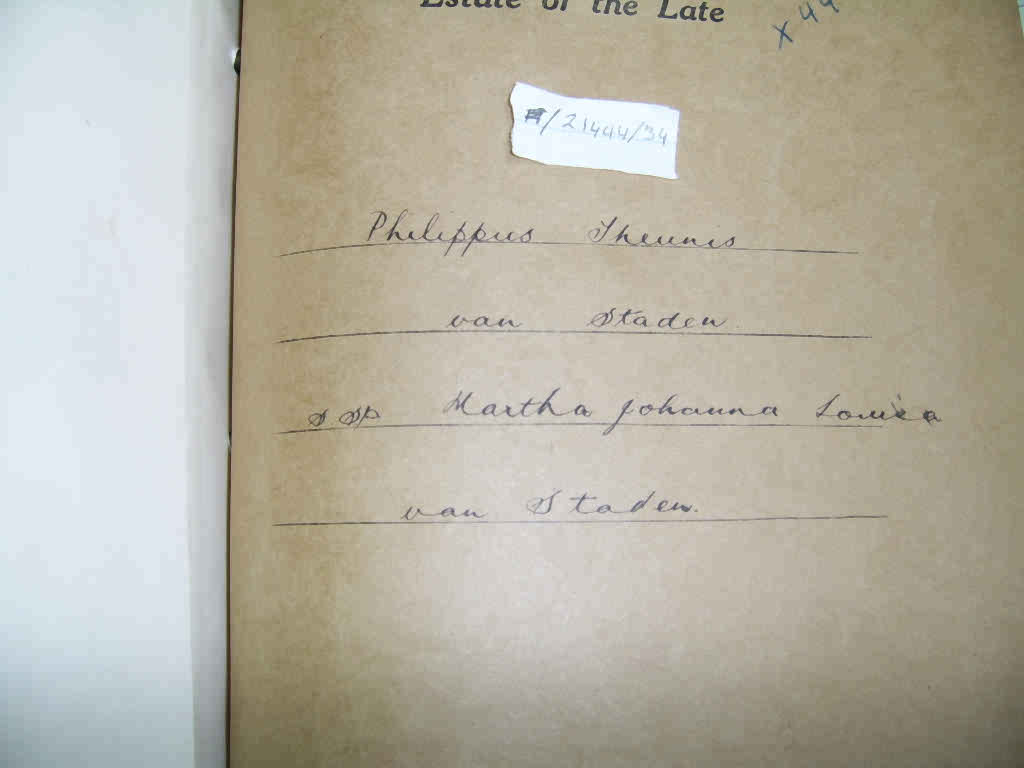 Estate of the Late
x 44
/21444/34
Philippus Theunis
van Staden
s sp Martha Johanna Louisa
van Staden.